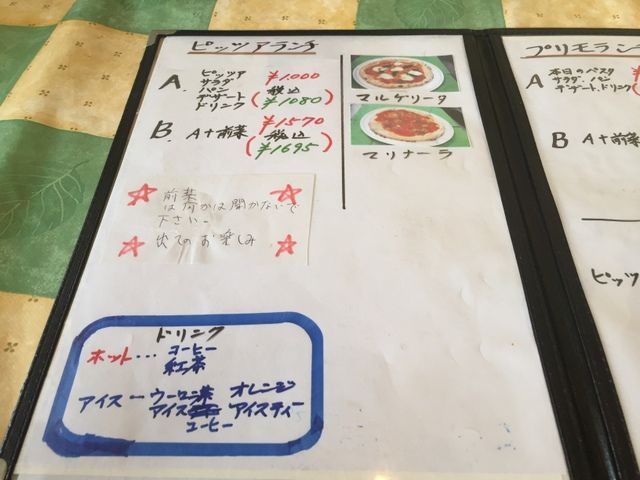 ピッツァランチ
A. ピッツァ
サラダ
パン
デザート
ドリンク
¥1.000
税込
(¥1080)
B. A+前菜
¥1570
税込
(¥1695)
マルゲリータ
マリナーラ
前菜
は何かは聞かないで
下さい。
出てのお楽しみ
ドリンク
ホット… コーヒー
紅茶
アイス ー ウーロン茶 オレンジ
アイス アイスティー
コーヒー
プリモラン
A 本日のパスタ
サラダ、パン
デザート、ドリンク
B A+前菜
ピッツ